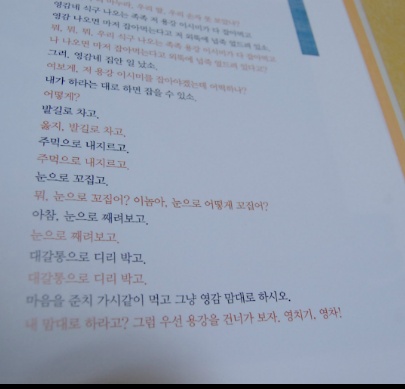 영감네 식구 나오는 족족 저 용강 이시미가 다 잡아먹고
영감 나오면 마저 잡아먹는다고 저 외뚝에 넙죽 엎드려 있소.
뭐, 뭐, 뭐, 우리 식구 나오는 족족 용강 이시미가 다 잡아먹고
나 나오면 마저 잡아먹는다고 외뚝에 넙죽 엎드려 있다고?
그려, 영감네 집안 일 났소.
이보게, 저 용강 이시미를 잡아야겠는데 어떡하나?
내가 하라는 대로 하면 잡을 수 있소.
어떻게?
발길로 차고.
옳지, 발길로 차고.
주먹으로 내지르고.
주먹으로 내지르고.
눈으로 꼬집고.
뭐, 눈으로 꼬집어? 이놈아, 눈으로 어떻게 꼬집어?
아참, 눈으로 째려보고.
눈으로 째려보고.
대갈통으로 디리 박고.
대갈통으로 디리 박고.
마음을 준치 가시같이 먹고 그냥 영감 맘대로 하시오.
내 맘대로 하라고? 그럼 우선 용강을 건너가 보자. 영치기, 영차!